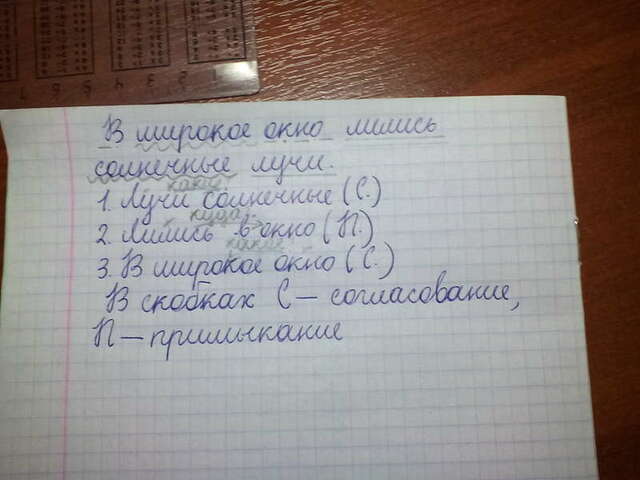 В широкое окно лились
солнечные лучи.
какие
1. Лучи солнечные (С.)
куда
2. Лились в окно (П.)
какое
3. В широкое окно (С.)
В скобках С — согласование,
П — примыкание